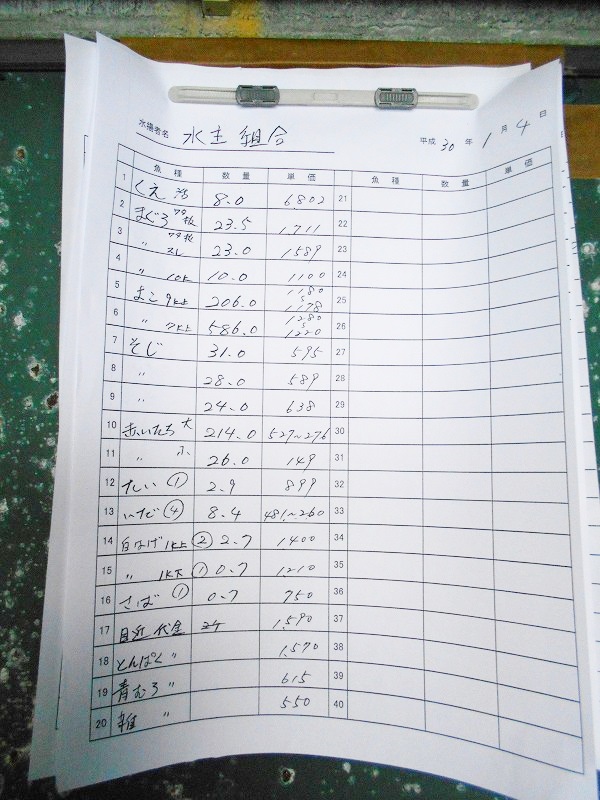 水揚者名 水主組合 平成 30 年 1 月 4 日
魚種 数量 単価 魚種 数量 単価
1 くえ 活 8.0 6802 21
2 まぐろ 23.5 1711 22
3 〃 23.0 1589 23
4 〃 10上 10.0 1100 24
5 9上 206.0 1180 1178 25
6 〃 7上 586.0 1280 1220 26
7 そじ 31.0 595 27
8 〃 28.0 589 28
9 〃 24.0 638 29
10 赤いたち 大 214.0 527~276 30
11 〃 小 26.0 149 31
12 たい ① 2.9 899 32
13 いだ ④ 8.4 481~260 33
14 白なげ 1K上 ② 2.7 1400 34
15 〃 1K下 ① 0.7 1,210 35
16 さば ① 0.7 750 36
17 目近 代金 1,590 37
18 とんぱく 〃 1,570 38
19 青むろ 〃 615 39
20 雑 〃 550 40